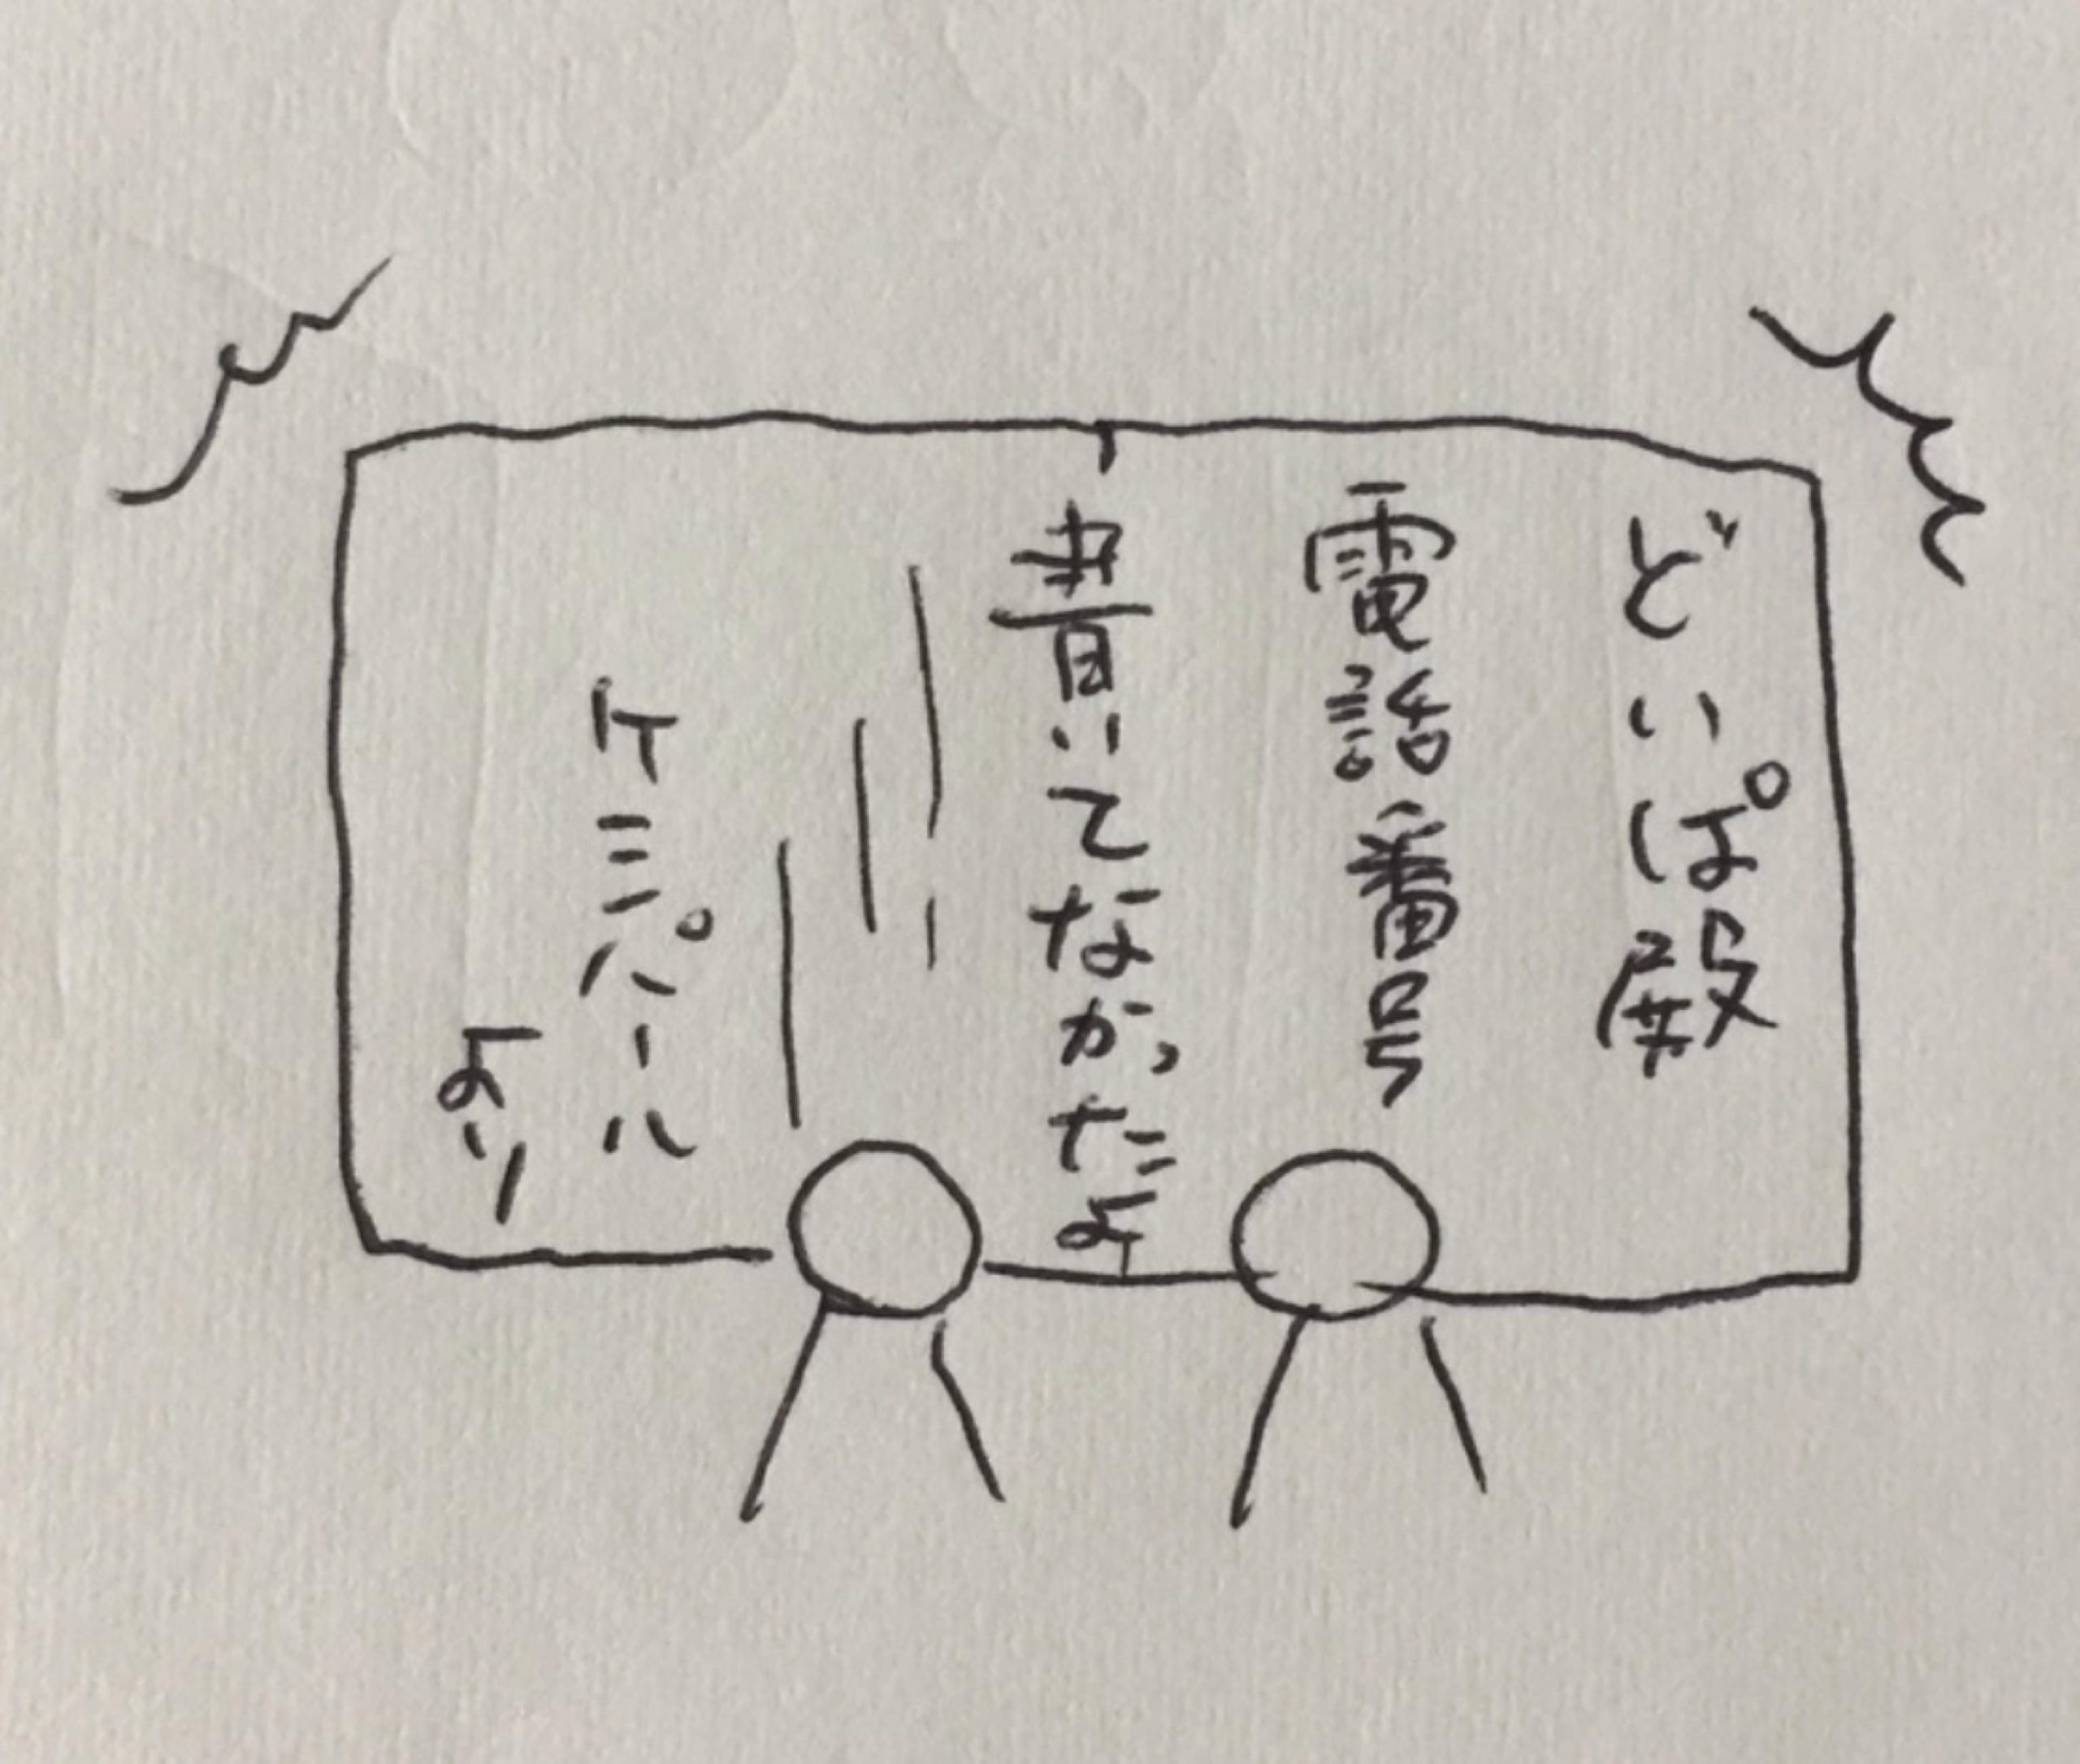 どいぱ殿
電話番号
書いてなかったよ
ケミパール
より